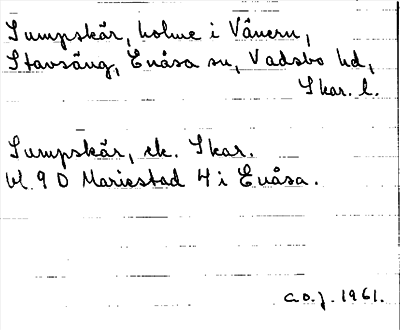 Sumpskär, holme i Vänern,
Stavsäng, Enåsa sn, Vadsbo hd,
Skar. l.
Sumpskär, ek. Skar.
bl. 9 D Mariestad 4 i Enåsa.
a.o.j. 1961.